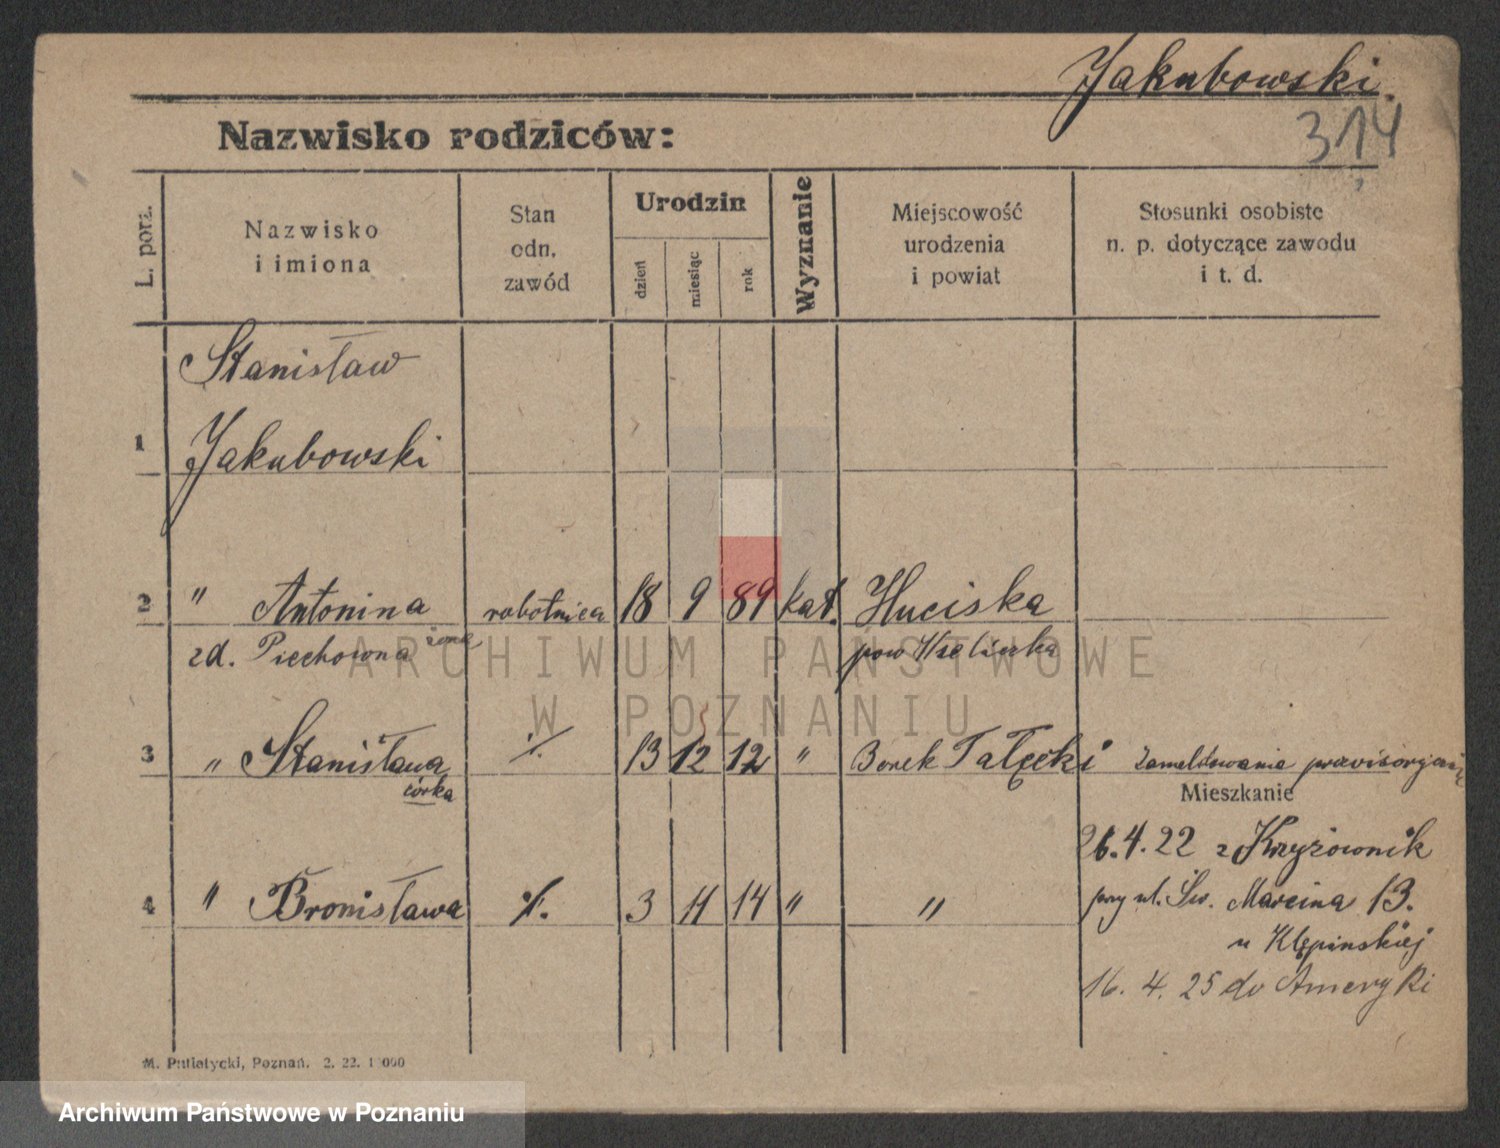 Jakubowski
314
Nazwisko rodziców:
L. porz.
Nazwisko
i imiona
Stan
odn.
zawód
Urodzin
dzień
miesiąc
rok
Wyznanie
Miejscowość
urodzenia
i powiat
Stosunki osobiste
n. p. dotyczące zawodu
i t. d.
Stanisław
1 Jakubowski
2 " Antonina robotnica 18 9 89 kat. Huciska
zd. Piechowna żona pow Wieliczka
3 " Stanisława ./. 13 12 12 " Borek Fałęcki zameldowania
córka
Mieszkanie
26.4.22 z Krzyżownik
4 " Bronisława ./. 3 11 14 " "
przy ul. Św. Marcina 13.
u Klępinskiej
16. 4. 25 do Ameryki
M. Putiatycki, Poznań. 2. 22. 1000
ARCHIWUM PAŃSTWOWE
W POZNANIU
Archiwum Państwowe w Poznaniu